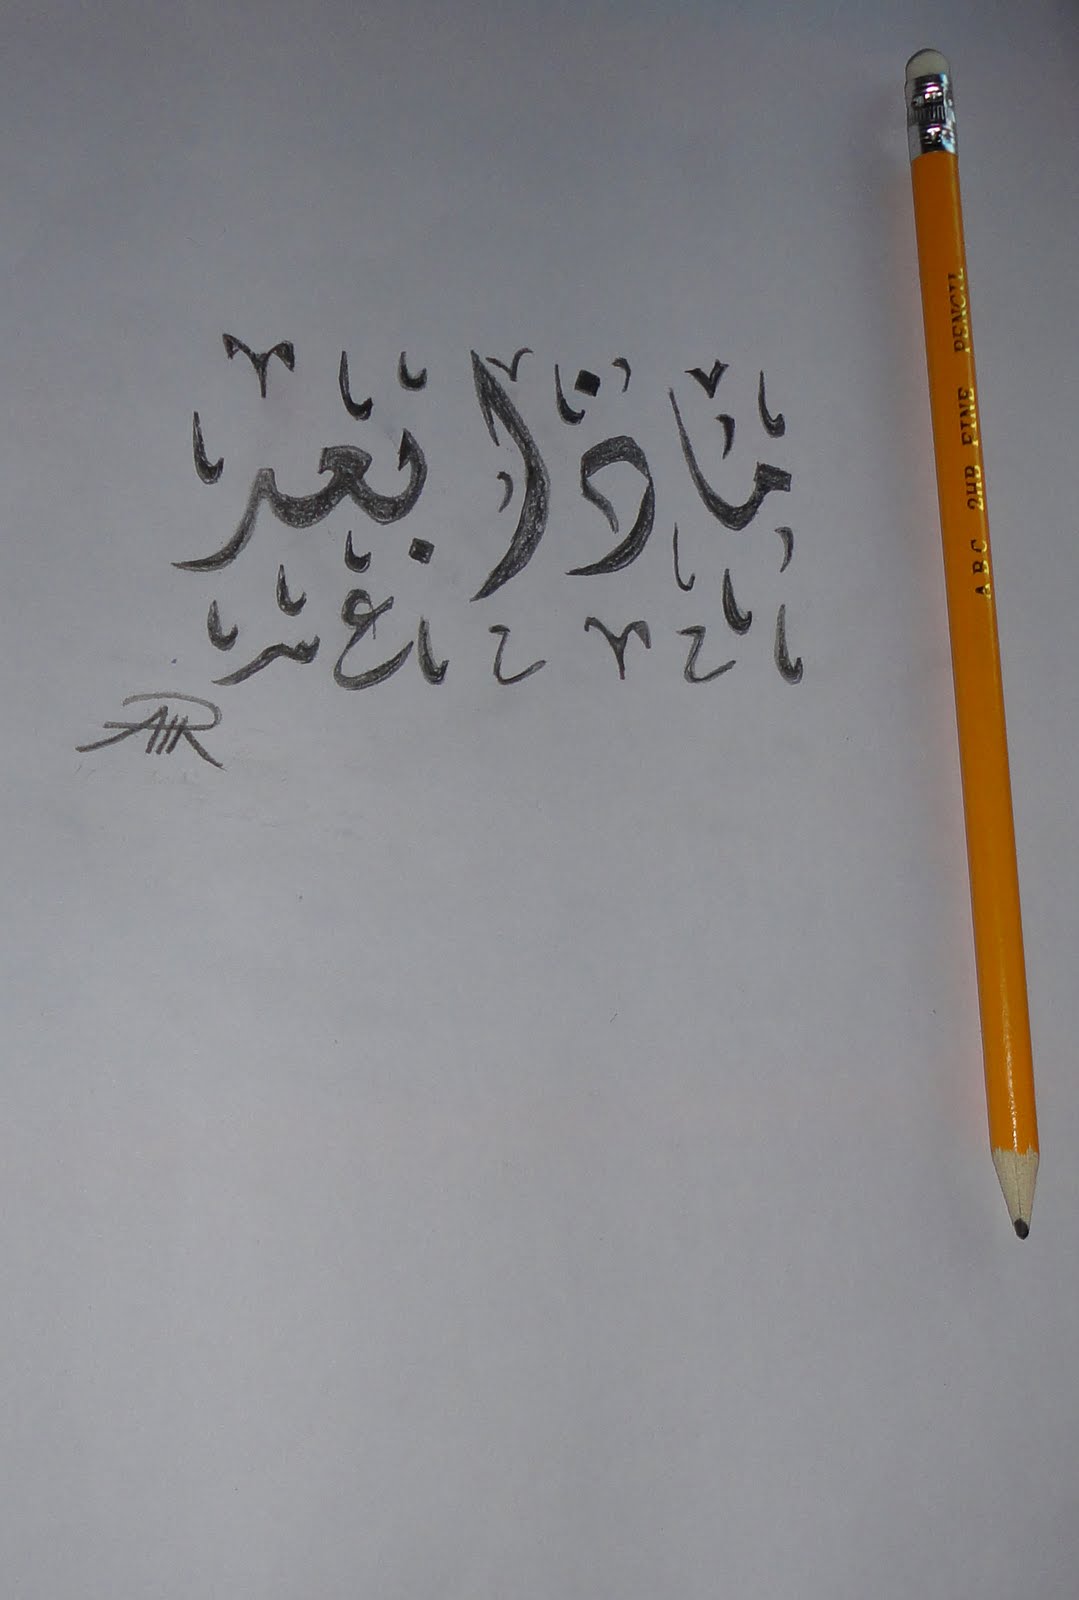 ماذا بعد
ABC 2HB FINE PENCIL